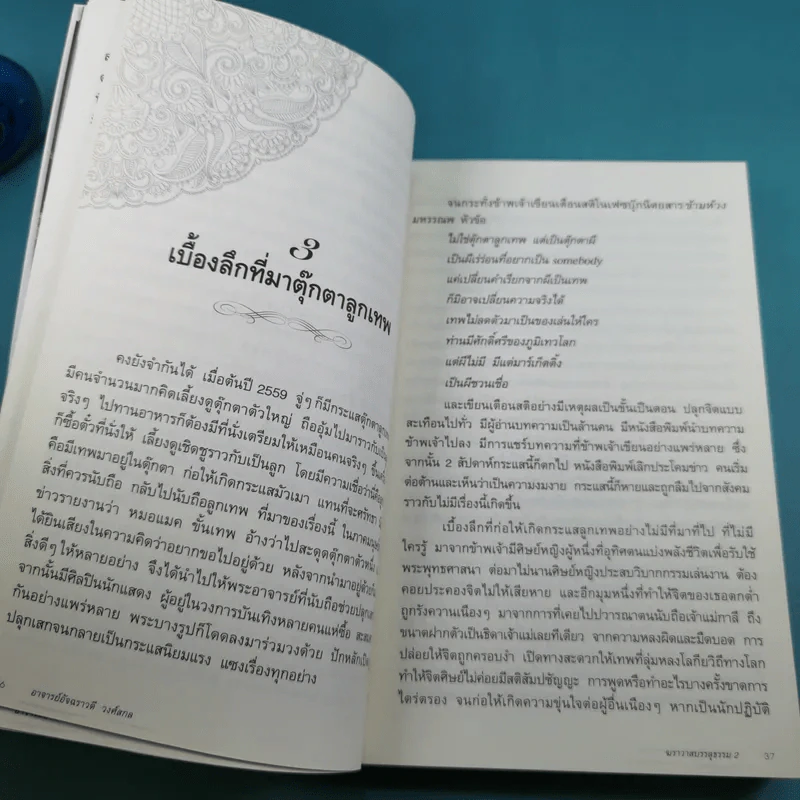 3
เบื้องลึกที่มาตุ๊กตาลูกเทพ
คงยังจำกันได้ เมื่อต้นปี 2559 จู่ๆ ก็มีกระแสตุ๊กตาลูกเทพ
มีคนจำนวนมากคิดเลี้ยงดูตุ๊กตาตัวใหญ่ ถืออุ้มไปมาราวกับเป็น
จริงๆ ไปทานอาหารก็ต้องมีที่นั่งเตรียมให้เหมือนคนจริงๆ ขึ้น
ก็ซื้อตั๋วที่นั่งให้ เลี้ยงดูเชิดชูราวกับเป็นลูก โดยมีความเชื่อว่า
คือมีเทพมาอยู่ในตุ๊กตา ก่อให้เกิดกระแสมัวเมา แทนที่จะศรัทธา
สิ่งที่ควรนับถือ กลับไปนับถือลูกเทพ ที่มาของเรื่องนี้ ในภาค
ข่าวรายงานว่า หมอแมค ขั้นเทพ อ้างว่าไปสะดุดตุ๊กตาตัวหนึ่ง
ได้ยินเสียงในความคิดว่าอยากขอไปอยู่ด้วย หลังจากนำมาอยู่ด้วย
สิ่งดีๆ ให้หลายอย่าง จึงได้นำไปให้พระอาจารย์ที่นับถือช่วยปลุก
จากนั้นมีศิลปินนักแสดง ผู้อยู่ในวงการบันเทิงหลายคนแห่ซื้อ
กันอย่างแพร่หลาย พระบางรูปก็โดดลงมาร่วมวงด้วย ปักหลัก
ปลุกเสกจนกลายเป็นกระแสนิยมแรง แซงเรื่องทุกอย่าง
6 อาจารย์อัจฉราวดี วงศ์สกล
จนกระทั่งข้าพเจ้าเขียนเตือนสติในเฟซบุ๊กนิตยสารข้ามห้วง
มหรรณพ หัวข้อ
ไม่ใช่ตุ๊กตาลูกเทพ แต่เป็นตุ๊กตาผี
เป็นผีเร่ร่อนที่อยากเป็น somebody
แค่เปลี่ยนคำเรียกจากผีเป็นเทพ
ก็มิอาจเปลี่ยนความจริงได้
เทพไม่ลดตัวมาเป็นของเล่นให้ใคร
ท่านมีศักดิ์ศรีของภูมิเทวโลก
แต่ผีไม่มี มีแต่มาร์เก็ตติ้ง
เป็นผีชวนเชื่อ
และเขียนเตือนสติอย่างมีเหตุผลเป็นขั้นเป็นตอน ปลุกจิตแบบ
สะเทือนไปทั่ว มีผู้อ่านบทความเป็นล้านคน มีหนังสือพิมพ์นำบทความ
ข้าพเจ้าไปลง มีการแชร์บทความที่ข้าพเจ้าเขียนอย่างแพร่หลาย ซึ่ง
จากนั้น 2 สัปดาห์กระแสนี้ก็ตกไป หนังสือพิมพ์เลิกประโคมข่าว คนเริ่ม
ต่อต้านและเห็นว่าเป็นความงมงาย กระแสนี้ก็หายและถูกลืมไปจากสังคม
ราวกับไม่มีเรื่องนี้เกิดขึ้น
เบื้องลึกที่ก่อให้เกิดกระแสลูกเทพอย่างไม่มีที่มาที่ไป ที่ไม่มี
ใครรู้ มาจากข้าพเจ้ามีศิษย์หญิงผู้หนึ่งที่อุทิศตนแบ่งพลังชีวิตเพื่อรับใช้
พระพุทธศาสนา ต่อมาไม่นานศิษย์หญิงประสบวิบากกรรมเล่นงาน ต้อง
คอยประคองจิตไม่ให้เสียหาย และอีกมุมหนึ่งที่ทำให้จิตของเธอตกต่ำ
ถูกรังควานเนืองๆ มาจากการที่เคยไปปวารณาตนนับถือเจ้าแม่กาลี ถึง
ขนาดฝากตัวเป็นธิดาเจ้าแม่เลยทีเดียว จากความหลงผิดและมืดบอด การ
ปล่อยให้จิตถูกครอบงำ เปิดทางสะดวกให้เทพที่ลุ่มหลงโลกียวิถีทางโลก
ทำให้จิตศิษย์ไม่ค่อยมีสติสัมปชัญญะ การพูดหรือทำอะไรบางครั้งขาดการ
ไตร่ตรอง จนก่อให้เกิดความขุ่นใจต่อผู้อื่นเนืองๆ หากเป็นนักปฏิบัติ
ฆราวาสบรรลุธรรม 2 37